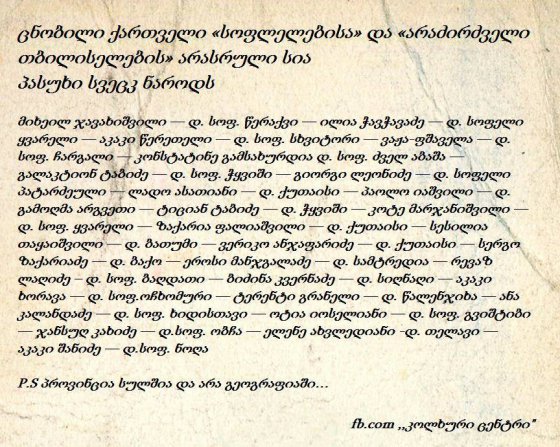 ცნობილი ქართველი «სოფლელებისა» და «არაძირძველი
თბილისელების» არასრული სია
პასუხი სვეცკ ნაროდს
მიხეილ ჯავახიშვილი — დ. სოფ. წერაქვი — ილია ჭავჭავაძე — დ. სოფელი
ყვარელი — აკაკი წერეთელი — დ. სოფ. სხვიტორი — ვაჟა-ფშაველა — დ.
სოფ. ჩარგალი — კონსტატინე გამსახურდია დ. სოფ. ძველ აბაშა —
გალაკტიონ ტაბიძე — დ. სოფ. ჭყვიში — გიორგი ლეონიძე — დ. სოფელი
პატარძეული — ლადო ასათიანი — დ. ქუთაისი — პაოლო იაშვილი — დ.
გამოღმა არგვეთი — ტიციან ტაბიძე — დ. ჭყვიში — კოტე მარჯანიშვილი —
დ. სოფ. ყვარელი — ზაქარია ფალიაშვილი — დ. ქუთაისი — სესილია
თაყაიშვილი — დ. ბათუმი — ვერიკო ანჯაფარიძე — დ. ქუთაისი — სერგო
ზაქარიაძე — დ. ბაქო — ეროსი მანჯგალაძე — დ. სამტრედია — რევაზ
ლაღიძე – დ. სოფ. ბაღდათი — ბიძინა კვერნაძე — დ. სიღნაღი — აკაკი
ხორავა — დ. სოფ.ოჩხომური — ტერენტი გრანელი — დ. წალენჯიხა — ანა
კალანდაძე — დ. სოფ. ხიდისთავი — ოტია იოსელიანი — დ. სოფ. გვიშტიბი
— ჯანსუღ კახიძე — დ.სოფ. ობჩა — ელენე ახვლედიანი -დ. თელავი —
აკაკი შანიძე — დ.სოფ. ნოღა
P.S პროვინცია სულშია და არა გეოგრაფიაში...
fb.com ,,კოლხური ცენტრი"